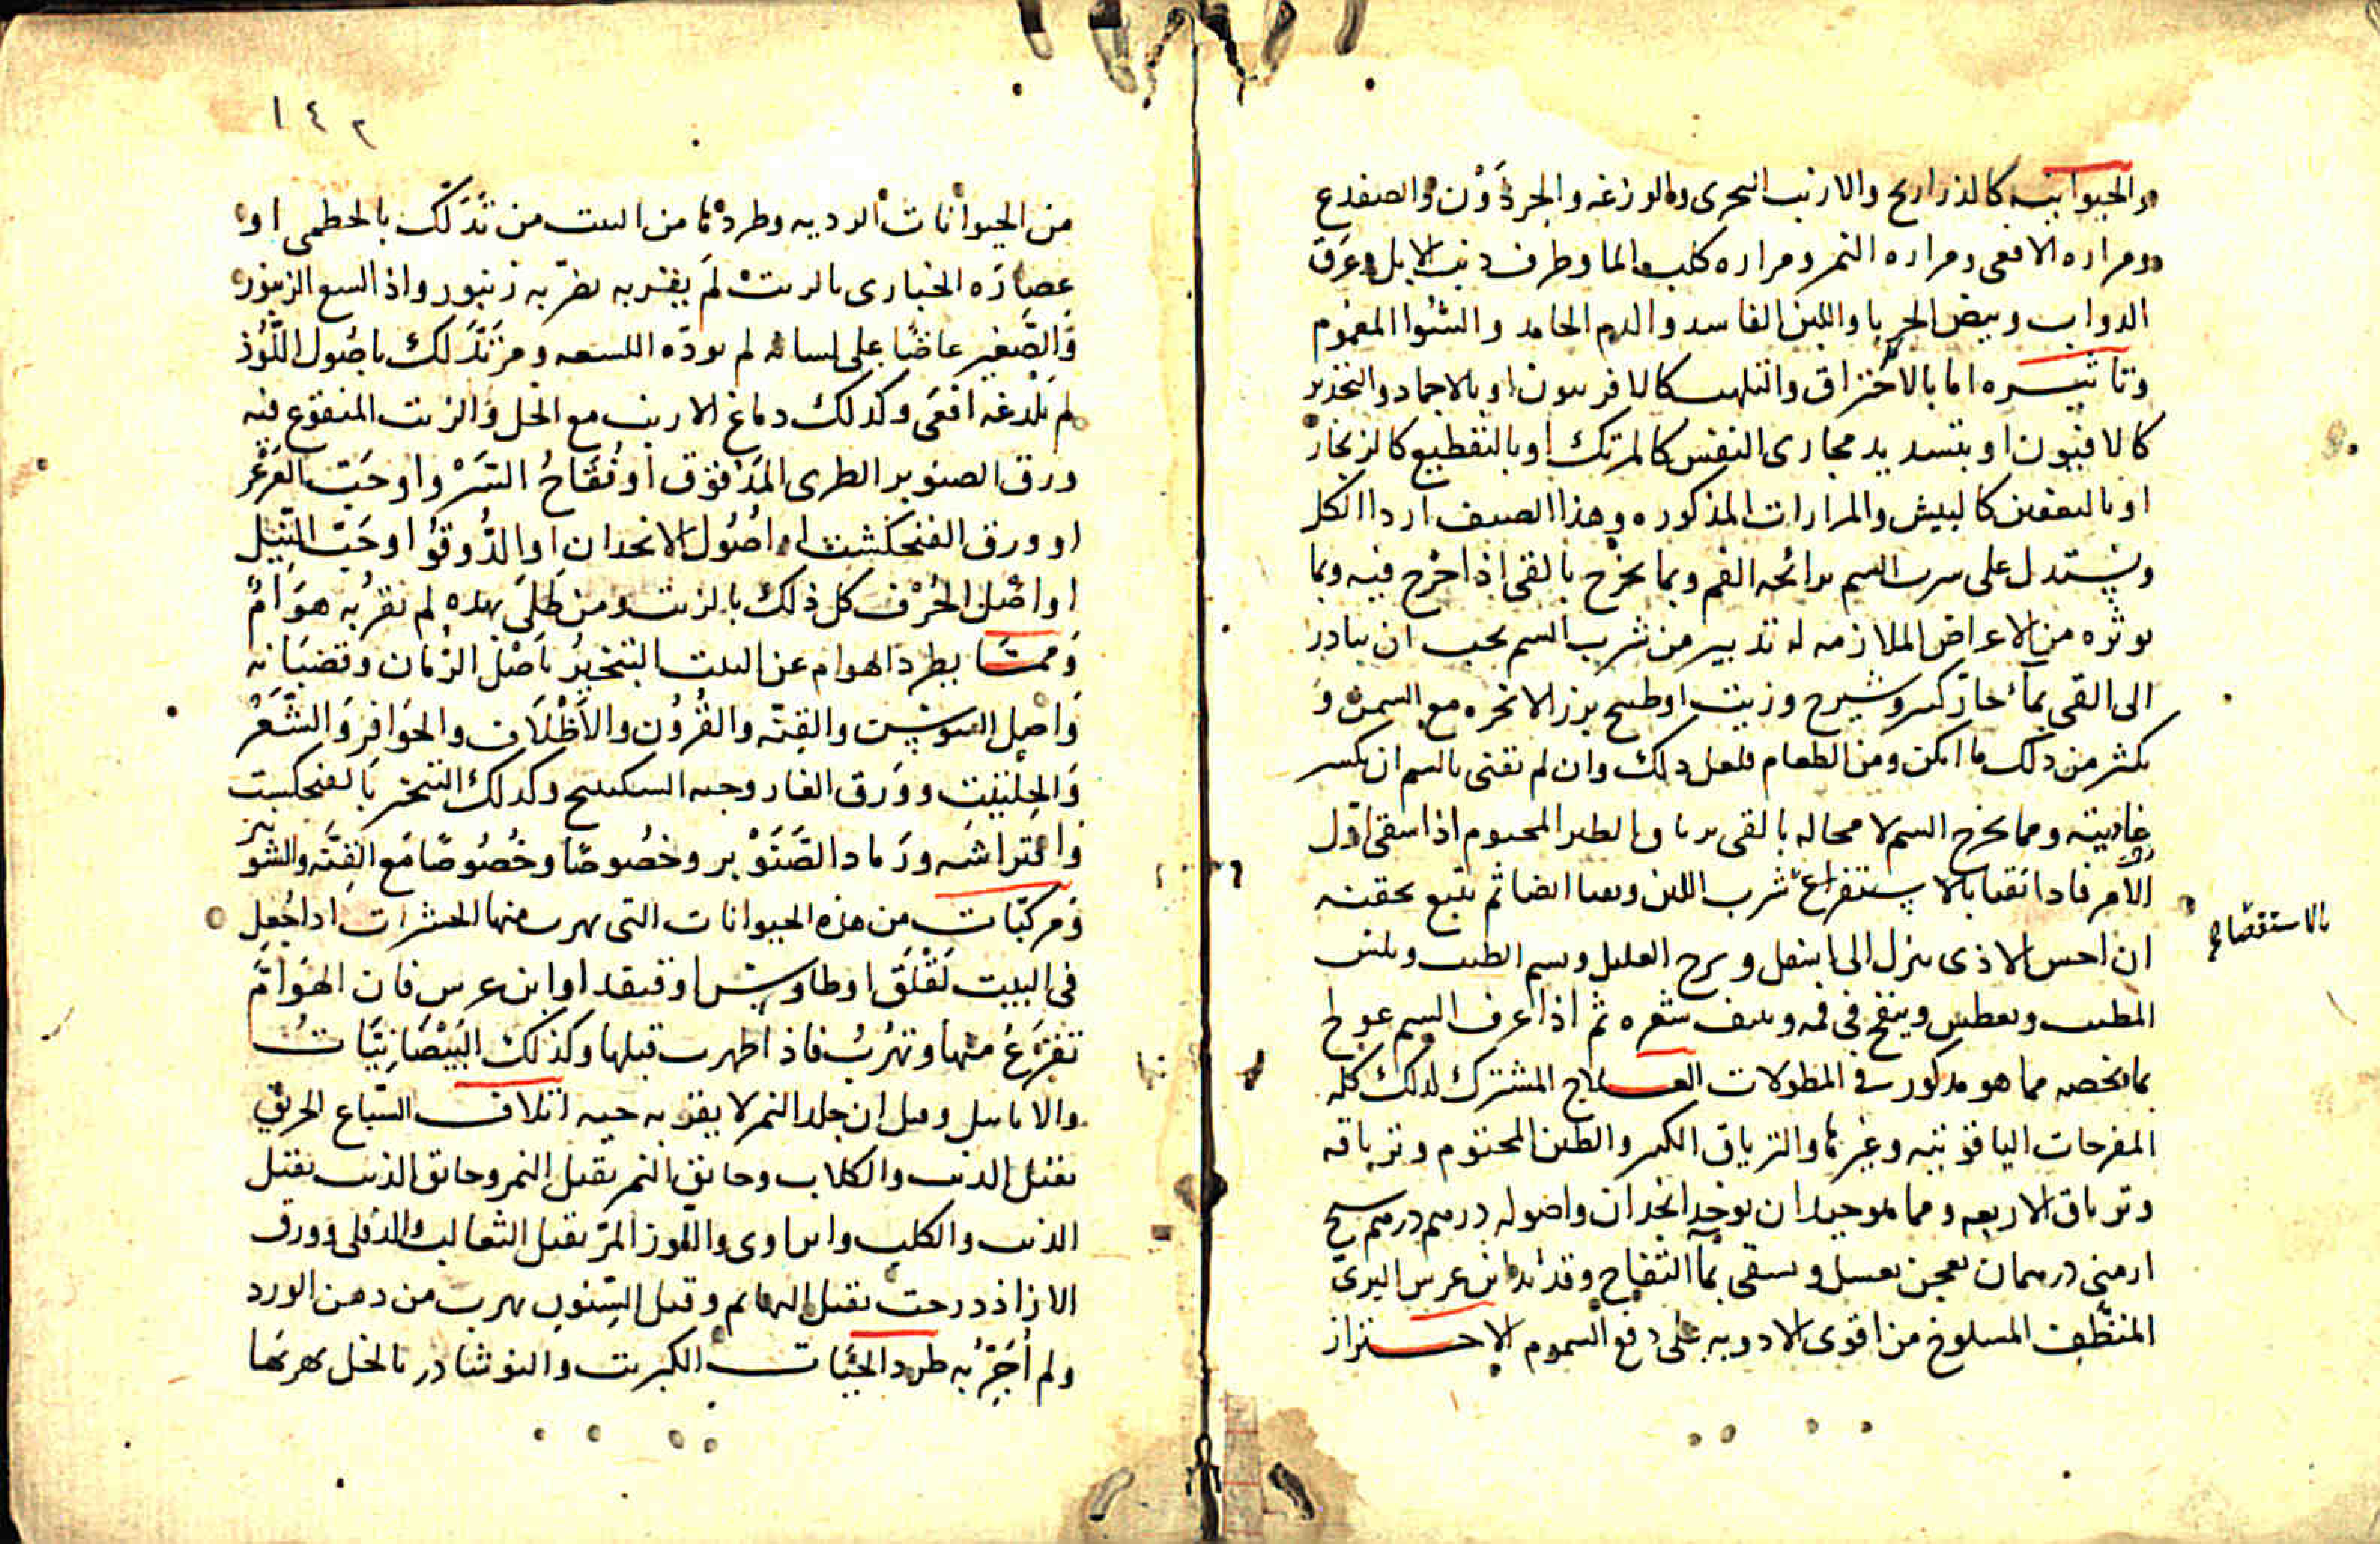 والحيوانيه كالذراريح والارنب البحرى والوزغه والجرذون والضفدع
ومراره الافعى ومراره النمر ومراره كلب الما وطرف ذنب الايل وعرق
الدواب وبيض الحربا واللبن الفاسد والدم الجامد والشوا المغموم
وتاثيره اما بالاحتراق والتلهيب كالافربيون او بالاجماد والتخدير
كالافيون او بتسديد مجارى النفس كالمرتك او بالتقطيع كالزنجار
او بالتعفين كالبيش والمرارات المذكوره وهذا الصنف اردا الكل
ويستدل على شرب السم برائحه الفم وبما يخرج بالقى اذا اخرج فيه وبما
يوثره من الاعراض الملازمه له تدبير من شرب السم يجب ان يبادر
الى القى بماء حار كثير وشيرج وزيت او طبيخ بزر الانجره مع السمن و
يكثر من ذلك ما امكن ومن الطعام فلعل ذلك وان لم يقنى بالسم ان يكسر
غايتيه ومما يخرج السم لا محاله بالقى ترياق الطين المختوم اذا سقى اول
الامر فاذا نقيا بالاستفراغ شرب اللبن وتقيا ايضا ثم يتبع بحقنه
بالاستقصا صح
ان احس الاذى ينزل الى اسفل ويرح العليل ويشم الطيب ويلبس
المطيب ويعطس وينفخ فى فمه وينتف شعره ثم اذا عرف السم عولج
بما يخصه مما هو مذكور فى المطولات العلاج المشترك لذلك كله
المفرحات الياقوتيه وغيرها والترياق الكبير والطين المختوم وترياقه
وترياق الاربعه ومما هو جيد ان يوخذ انجدان واصوله درهم درهم شيح
ارمنى درهمان يعجن بعسل ويسقى بما التفاح وقديد ابن عرس البرى
المنظف المسلوخ من اقوى الادويه على دفع السموم الاحتراز
١٤٢
من الحيوانات الرديه وطردها من البيت من تدلك بالخطمى او
عصاره الخبازى بالزيت لم يقربه نضر به زنبور واذا لسع الزنبور
والصغير عاضا على لسانه لم يوذه اللسعه ومن تدلك باصول اللوز
لم تلدغه افعى وكذلك دماغ الارنب مع الخل والزيت المنقوع فيه
ورق الصنوبر الطرى المدقوق او فقاح السرو او حب العرعر
او ورق الفنجنكشت او اصول الانجدان او الدوقو او حب النيل
او اصل الحرف كل ذلك بالزيت ومن طلى بهذه لم تقربه هوام
ومما يطرد الهوام عن البيت التبخير باصل الرمان وقضبانه
واصل السوسن والقنه والقرون والاظلاف والحوافر والشعر
والحلتيت وورق الغار وحبه السكبينج وكذلك التبخر بالفنجنكشت
وافتراشه ورماد الصنوبر وخصوصا وخصوصا مع القنه والشونيز
ومركبات من هذه الحيوانات التى يهرب منها الحشرات اذا جعل
فى البيت لقلق او طاوس او قنفد او ابن عرس فان الهوام
تفزع منها وتهرب فاذا ظهرت قتلها وكذلك البيضانيات
والايايل وقيل ان جلد النمر لا يقربه حيه اتلاف السباع الخربق
يقتل الذيب والكلاب وخانق النمر يقتل النمر وخانق الذيب يقتل
الذيب والكلب وابن اوى واللوز المر يقتل الثعالب والدفلى وورق
الازاذدرخت يقتل البهائم وقيل السنور يهرب من دهن الورد
ولم اجربه طرد الحيات الكبريت والنوشادر بالخل يهربها